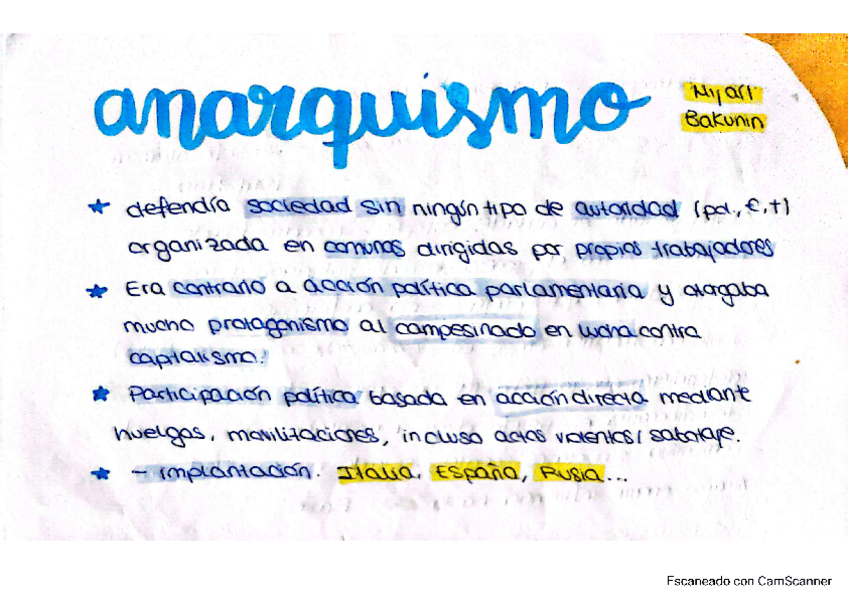 anarquismo
Mijail
Bakunin
★ defendía sociedad sin ningún tipo de autoridad (pol., €, †)
organizada en comunas dirigidas por propios trabajadores
★ Era contrario a acción política parlamentaria y otorgaba
mucho protagonismo al campesinado en lucha contra
capitalismo.
★ Participación política basada en acción directa mediante
huelgas, movilizaciones, incluso actos violentos / sabotaje.
★ - implantación. Italia, España, Rusia...
Escaneado con CamScanner